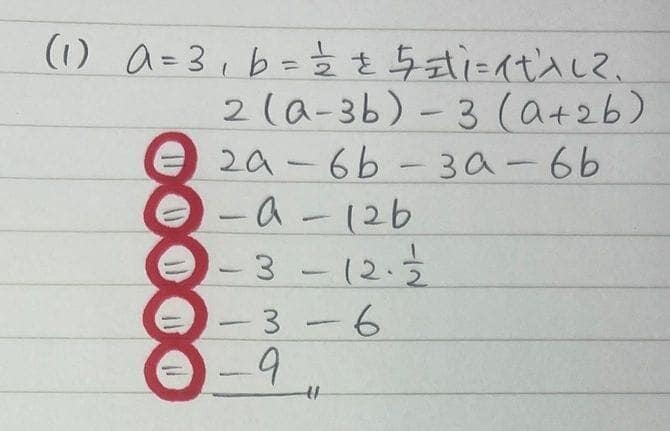 (1) a=3, b=½を与式に代入して、
2(a-3b)-3(a+2b)
= 2a-6b-3a-6b
= -a-12b
= -3-12·½
= -3-6
= -9〃